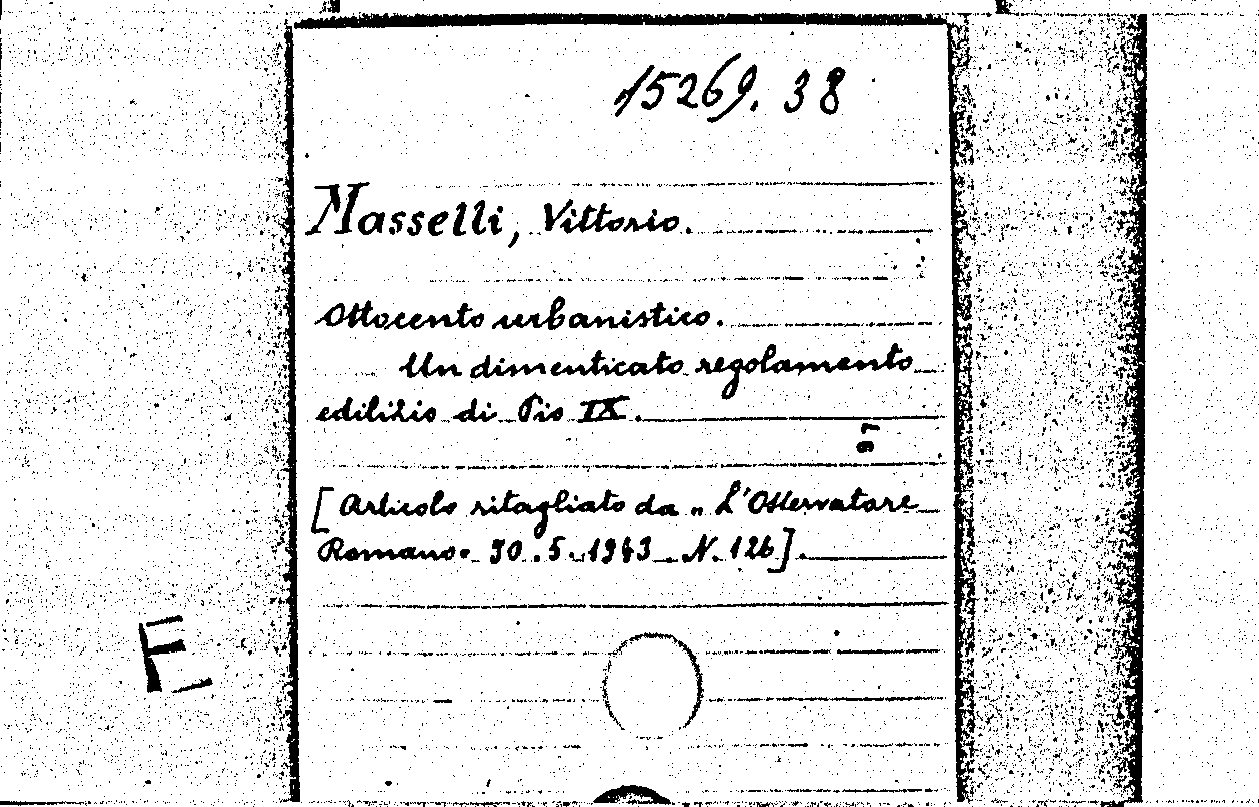 15269. 38
Masselli, Vittorio.
Ottocento urbanistico.
Un dimenticato regolamento
edilizio di Pio IX.
97
[Articolo ritagliato da „L'Osservatore
Romano" 30.5.1943 N. 126].
E